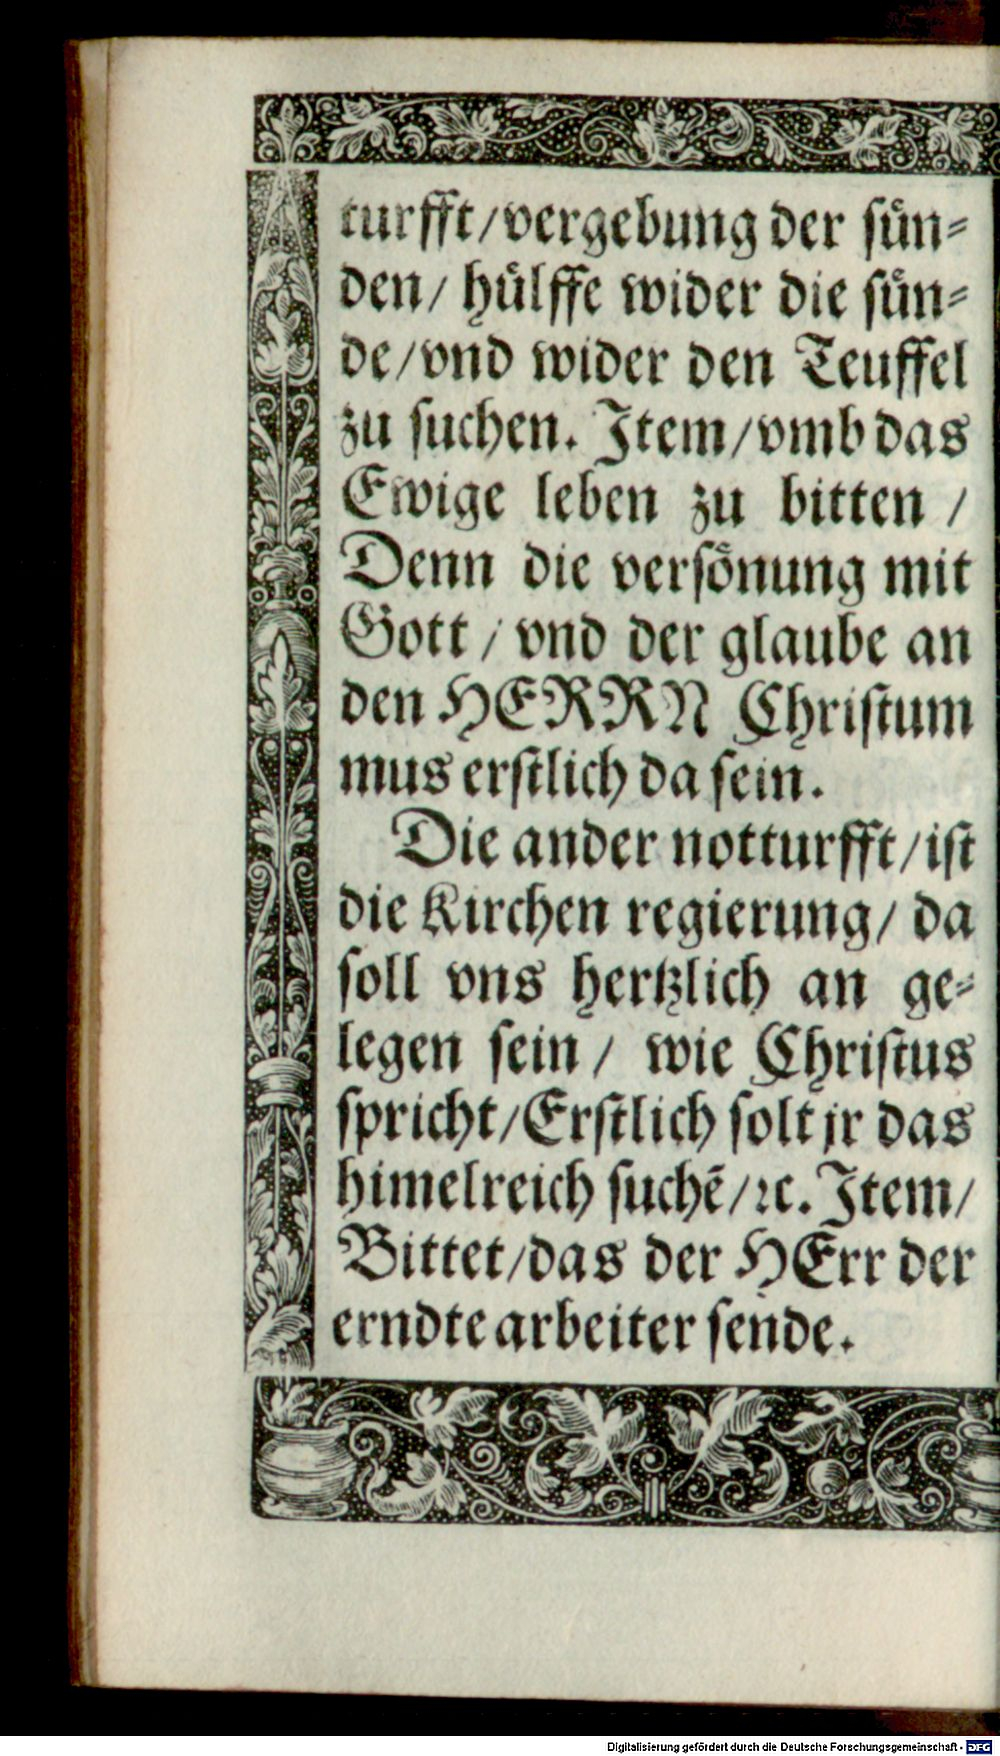 turfft/vergebung der sün-
den/ hülffe wider die sün-
de/vnd wider den Teuffel
zu suchen. Item/vmb das
Ewige leben zu bitten /
Denn die versönung mit
Gott / vnd der glaube an
den HERRN Christum
mus erstlich da sein.
Die ander notturfft/ist
die Kirchen regierung/ da
soll vns hertzlich an ge-
legen sein / wie Christus
spricht/Erstlich solt jr das
himelreich suchē/ꝛc. Item/
Bittet/das der HErr der
erndte arbeiter sende.
Digitalisierung gefördert durch die Deutsche Forschungsgemeinschaft - DFG